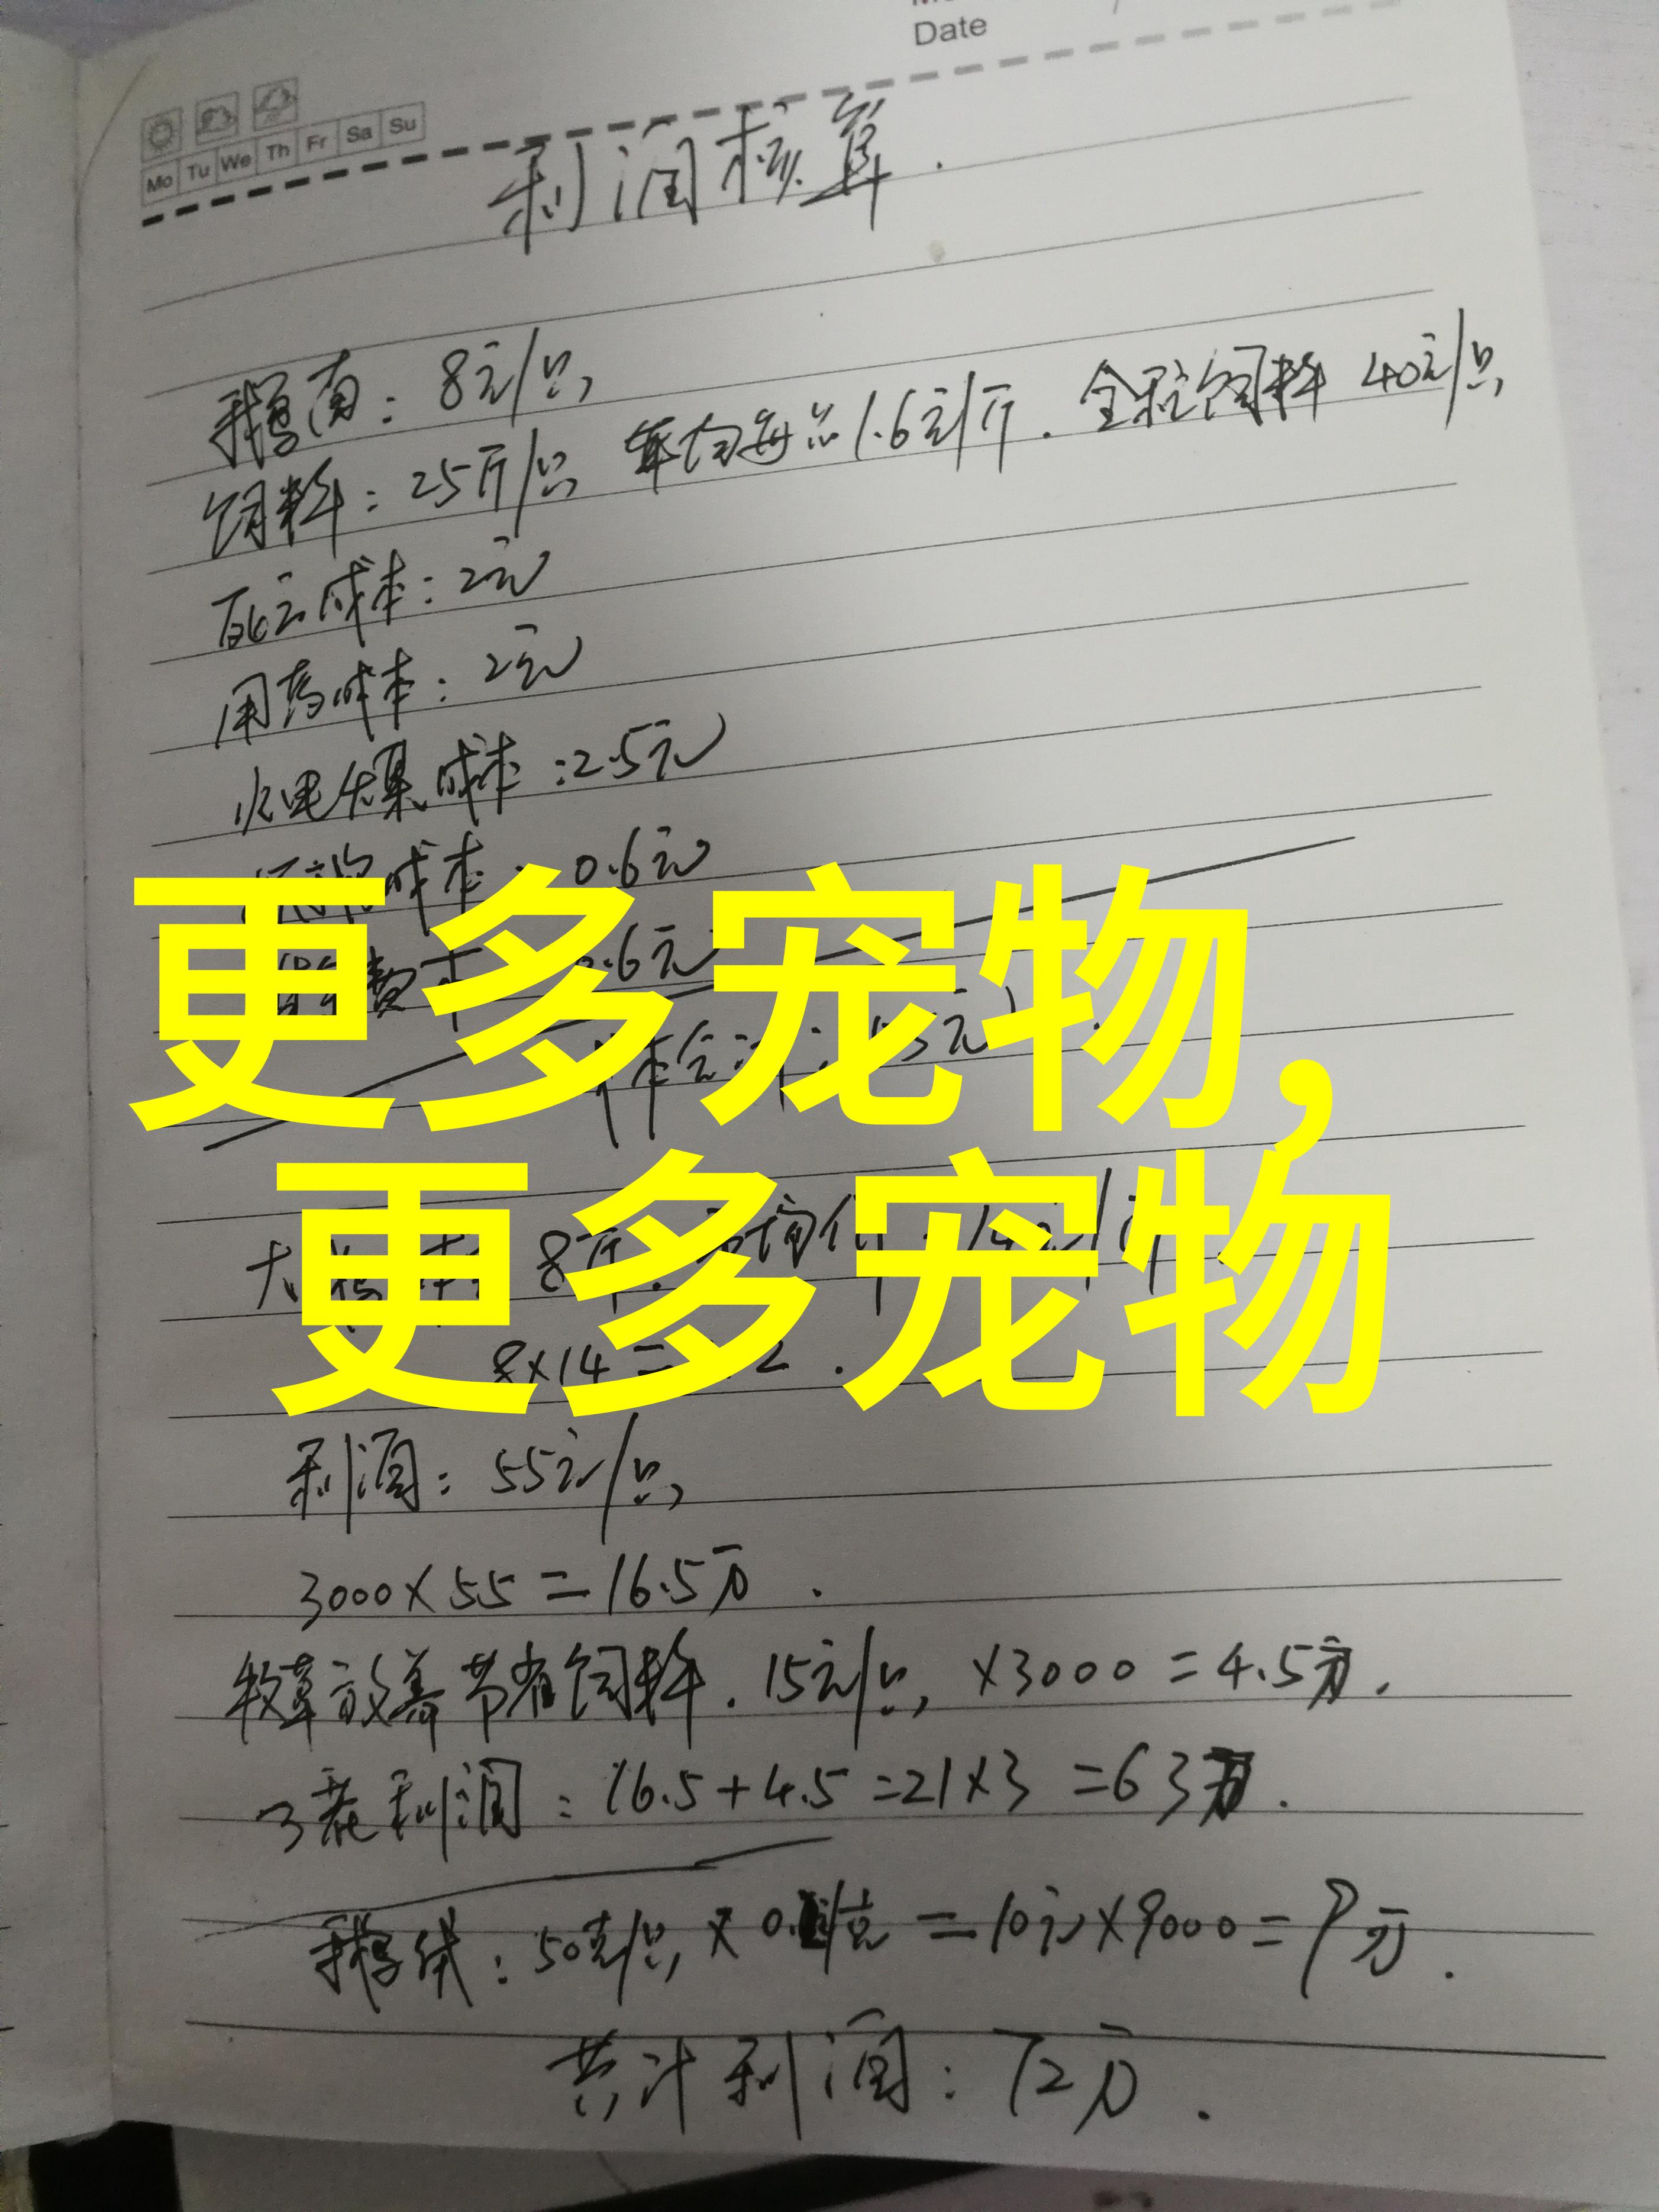 Date
Mo Tu We Th Fr Sa Su
利润核算.
鹅苗: 8元/只
饲料: 25斤/只 1.6元/斤. 全程饲料 40元/只
死亡成本: 2元
用药成本: 2元
水电煤成本: 2.5元
成本: 0.6元
更多宠物,
更多宠物
8×14=
利润: 55元/只
3000×55=16.5万.
牧草放养节省饲料. 15元/只, ×3000=4.5万.
3茬利润: 16.5+4.5=21×3=63万.
鹅绒: 50克/只 × =10元×9000=9万.
共计利润: 72万.